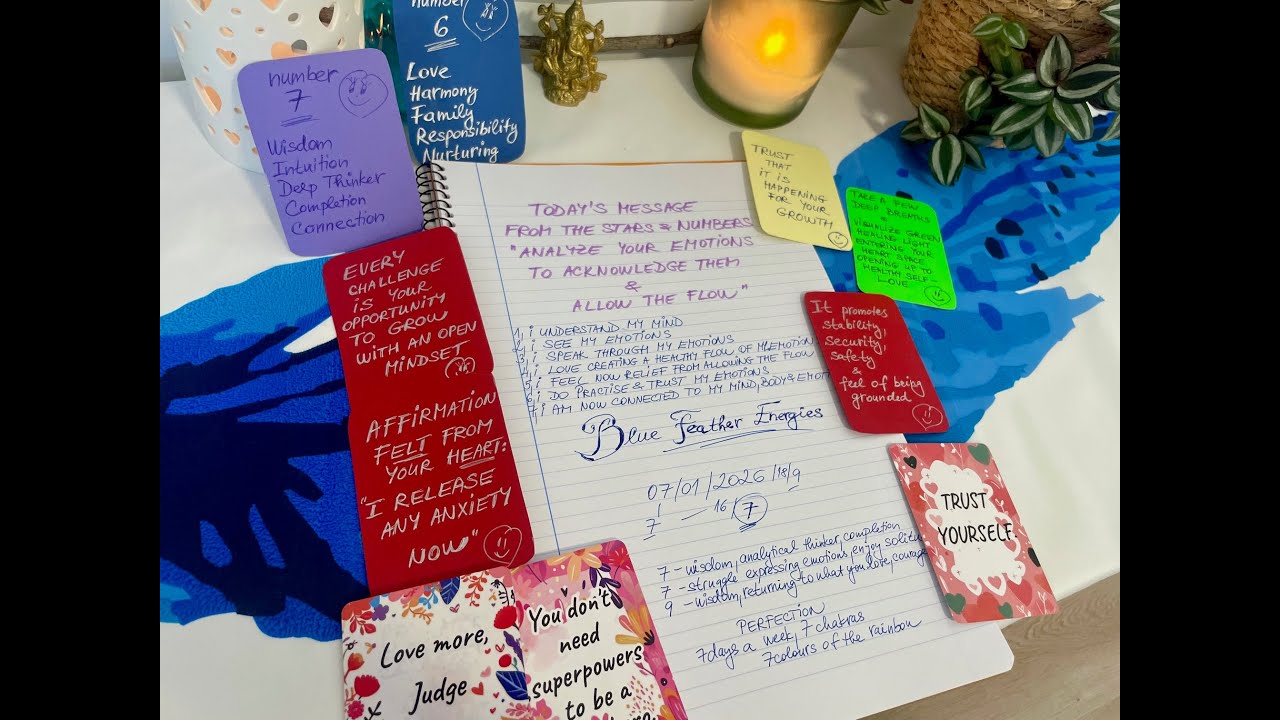 number
7
Wisdom
Intuition
Deep Thinker
Completion
Connection
number
6
Love
Harmony
Family
Responsibility
Nurturing
EVERY
CHALLENGE
IS YOUR
OPPORTUNITY
TO GROW
WITH AN OPEN
MINDSET
AFFIRMATION
FELT FROM
YOUR HEART:
"I RELEASE
ANY ANXIETY
NOW"
TODAY'S MESSAGE
FROM THE STARS & NUMBERS
"ANALYZE YOUR EMOTIONS
TO ACKNOWLEDGE THEM
&
ALLOW THE FLOW"
1, i UNDERSTAND MY MIND
2, i SEE MY EMOTIONS
3, i SPEAK THROUGH MY EMOTIONS
4, i LOVE CREATING A HEALTHY FLOW OF MY EMOTION
5, i FEEL NOW RELIEF FROM ALLOWING THE FLOW
6, i DO PRACTISE & TRUST MY EMOTIONS
7, i AM NOW CONNECTED TO MY MIND, BODY & EMOTI
Blue Feather Energies
07/01/2026/18/9
7 — 16/7
7 - wisdom, analytical thinker, completion
7 - struggle expressing emotions, enjoy solitu
9 - wisdom, returning to what you love, courage
PERFECTION
7 days a week, 7 chakras
7 colours of the rainbow
TRUST
THAT
IT IS
HAPPENING
FOR YOUR
GROWTH
TAKE A FEW
DEEP BREATHS
&
VISUALIZE GREEN
HEALING LIGHT
ENTERING YOUR
HEART SPACE
OPENING UP TO
HEALTHY SELF-
LOVE
It promotes
stability,
security,
safety
&
feel of being
grounded
TRUST
YOURSELF.
Love more,
Judge
You don't
need
superpowers
to be a